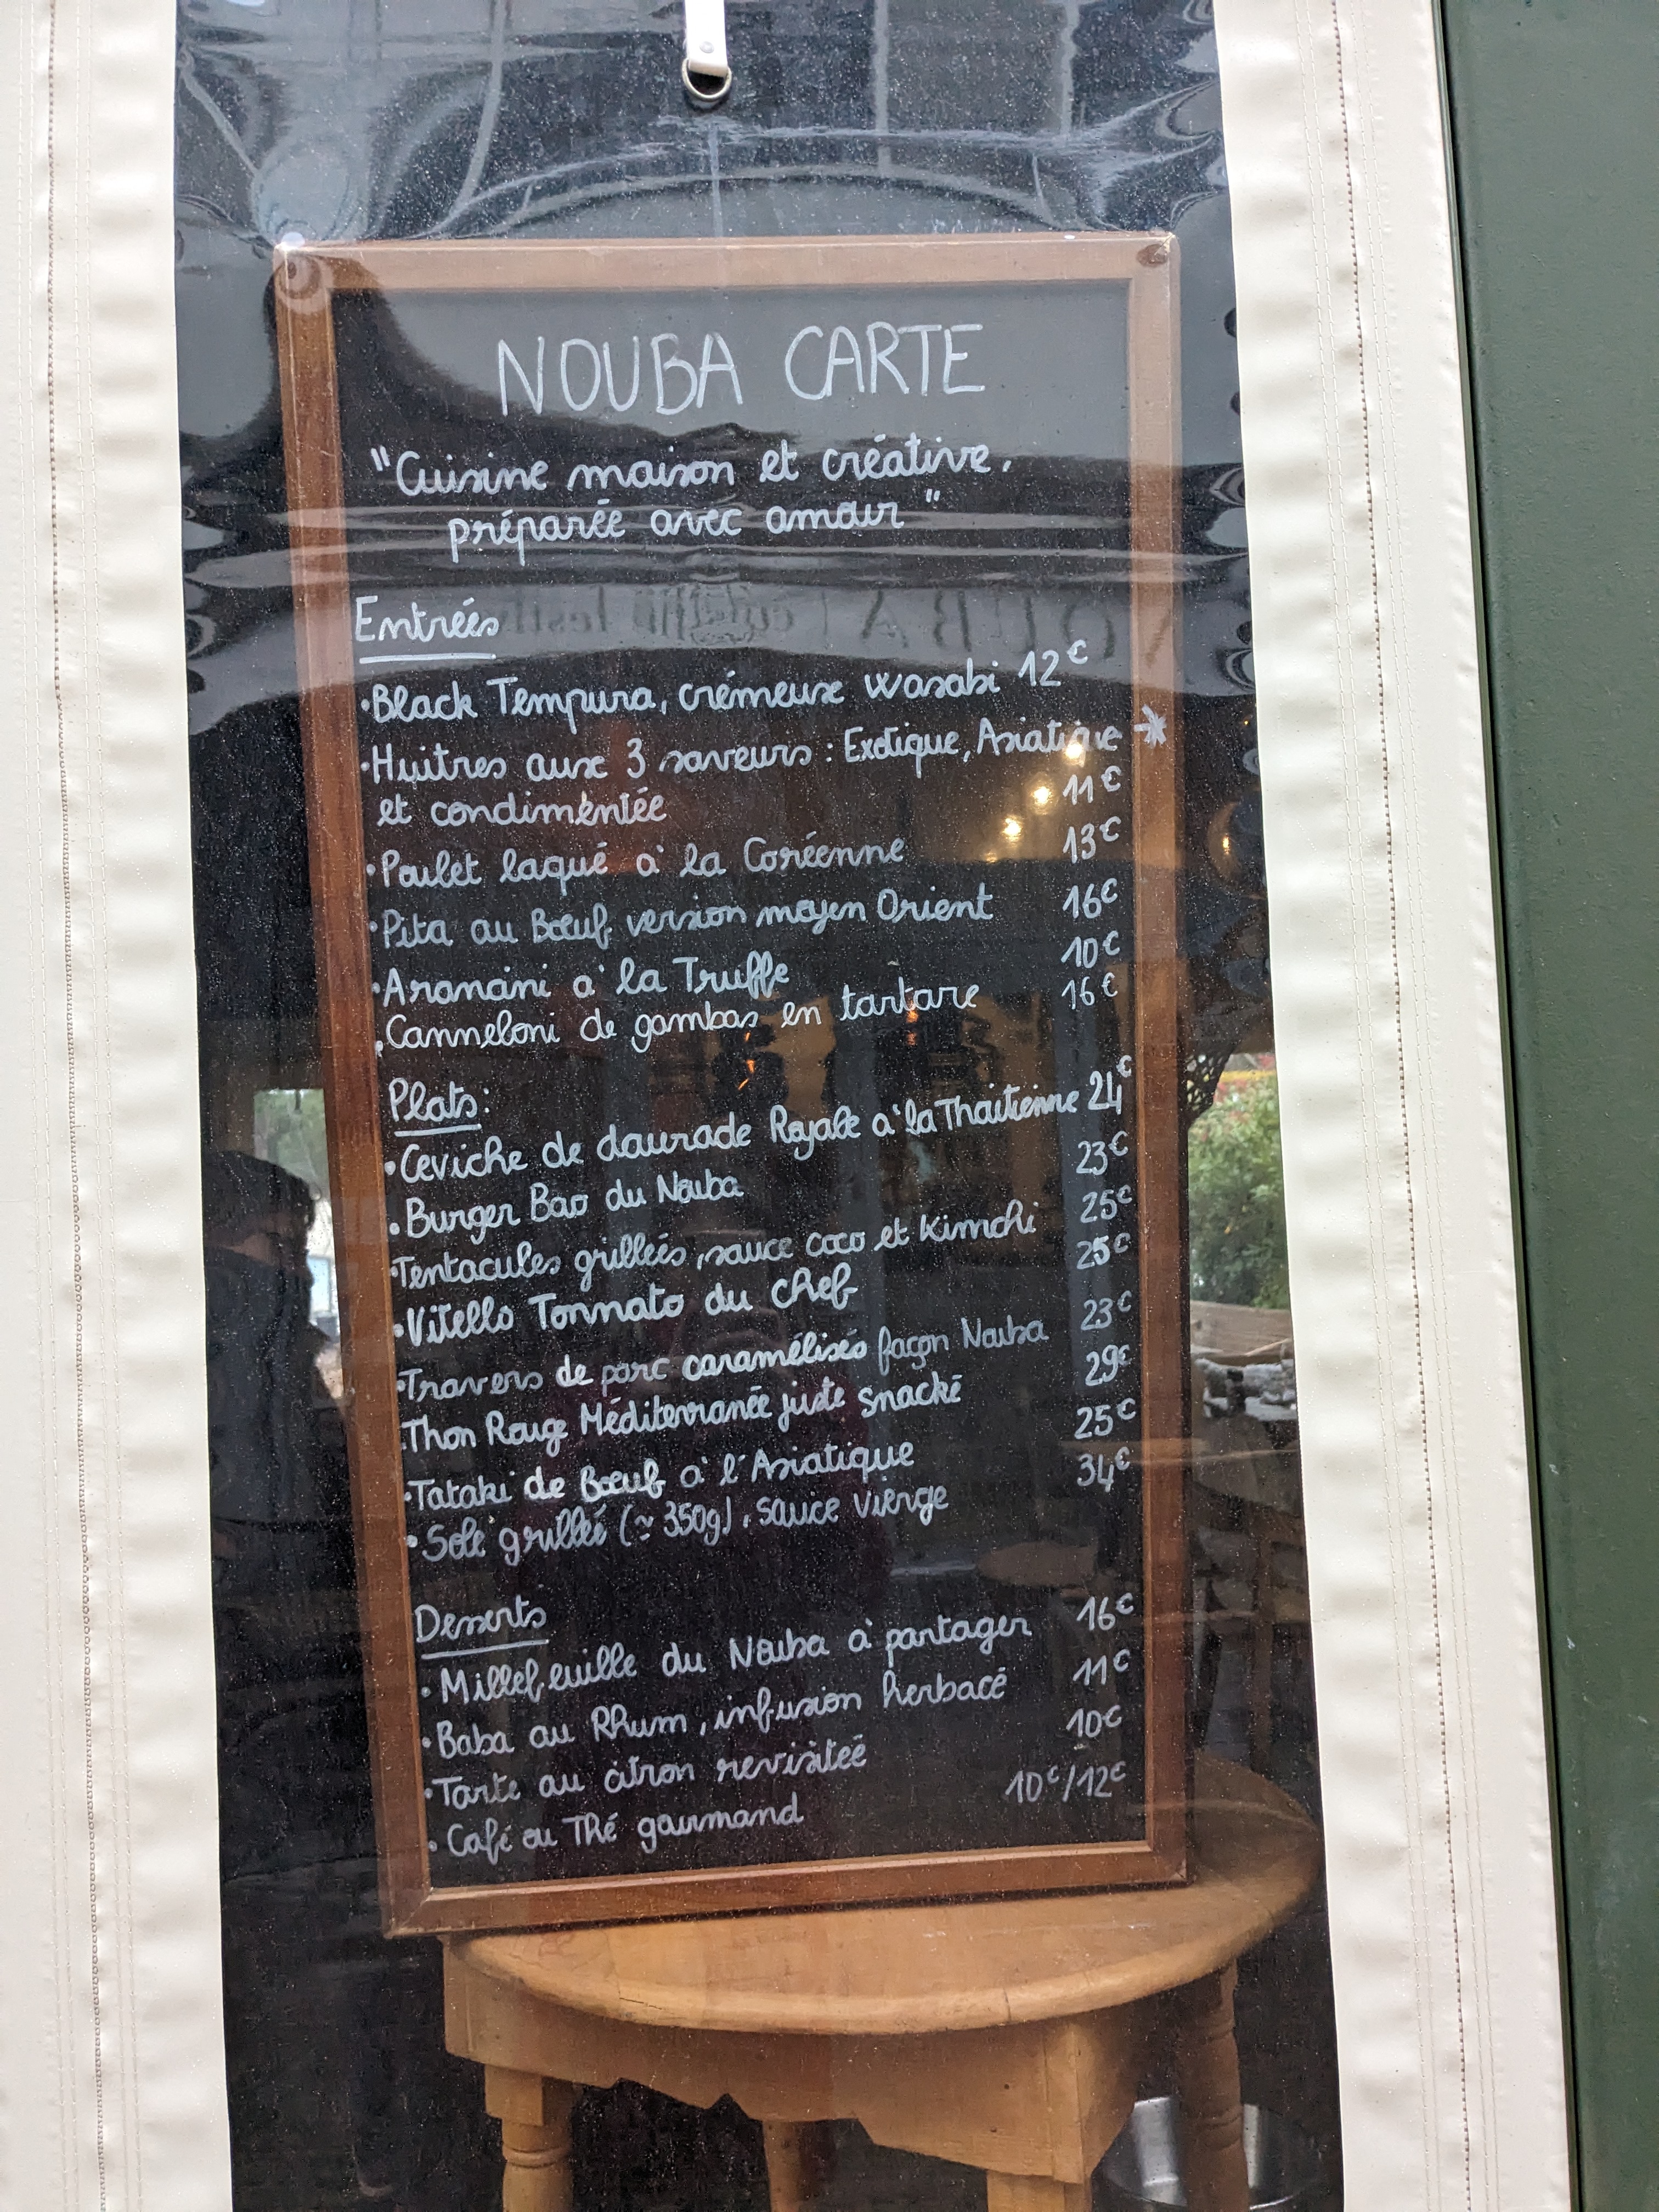 NOUBA CARTE
"Cuisine maison et créative,
préparée avec amour"
Entrées
•Black Tempura, crémeux wasabi 12€
•Huitres aux 3 saveurs : Exotique, Asiatique *
et condimentée 11€
•Poulet laqué à la Coréenne 13€
•Pita au Bœuf version moyen Orient 16€
•Aranani à la Truffe 10€
•Canneloni de gambas en tartare 16€
Plats:
•Ceviche de daurade Royale à la Thaitienne 24€
•Burger Bao du Nouba 23€
•Tentacules grillées, sauce coco et Kimchi 25€
•Vitello Tonnato du chef 25€
•Travers de porc caramélisés façon Nouba 23€
•Thon Rouge Méditerranée juste snacké 29€
•Tataki de Bœuf à l'Asiatique 25€
•Sole grillée (≃ 350g), sauce vierge 34€
Desserts
•Millefeuille du Nouba à partager 16€
•Baba au Rhum, infusion herbacé 11€
•Tarte au citron revisitée 10€
•Café ou Thé gourmand 10€/12€